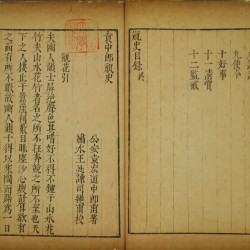 九使令
十好事
十一清賞
十二監戒
瓶史目錄終
袁中郎瓶史
公安袁宏道中郎甫著
繡水王
瓶花引
夫幽人韻士屏絕聲色其嗜好不得不鍾于山水花
竹夫山水花竹者名之所不在奔競之所不至也天
下之人棲止于囂崖利藪目眯塵沙心疲計算欲有
之而有所不暇故幽人韻士得以乘間而踞為一日